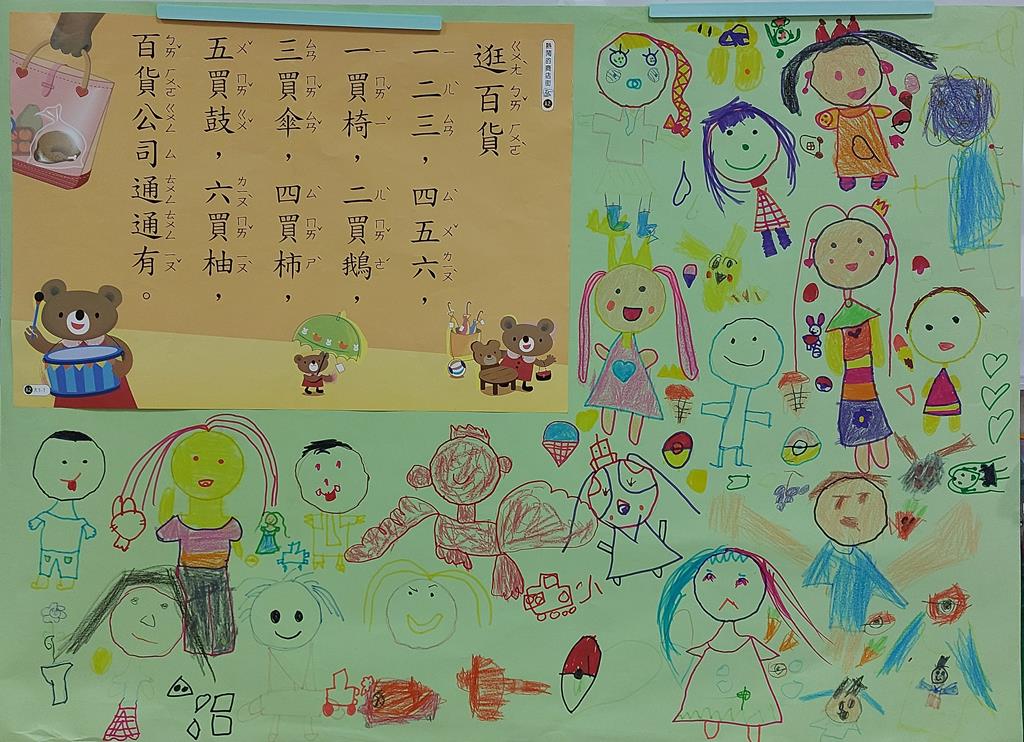 熱鬧的商店街
逛百貨
一二三，四五六，
一買椅，二買鵝，
三買傘，四買柿，
五買鼓，六買柚，
百貨公司通通有。